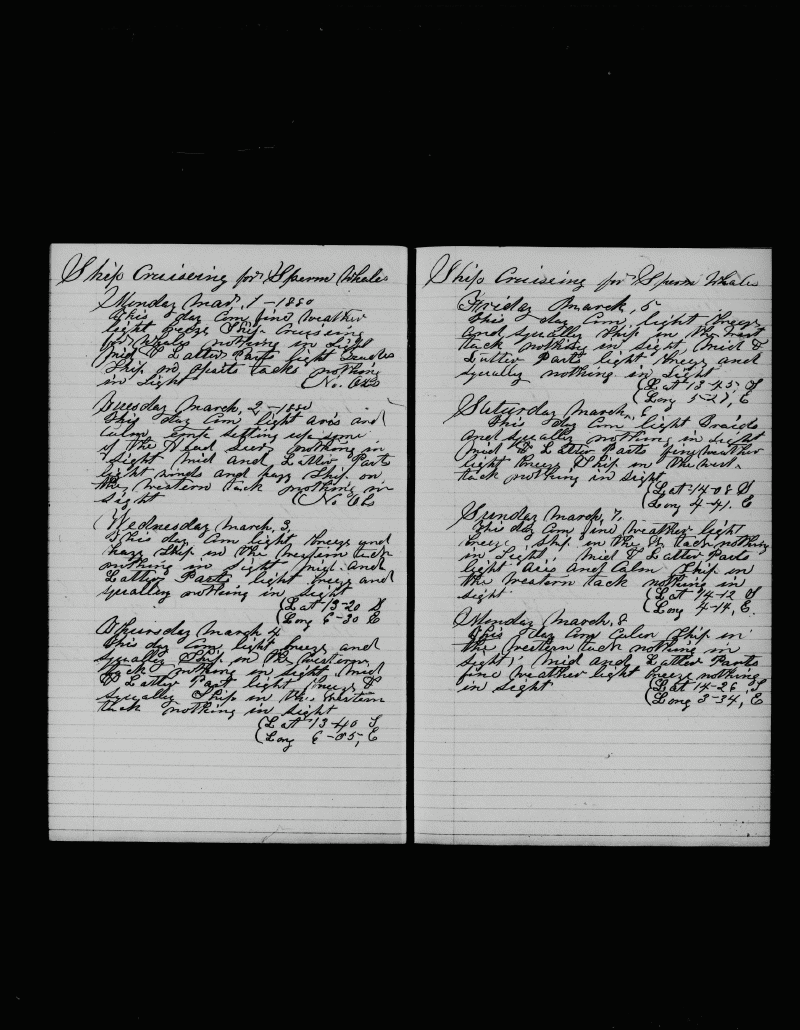 Ship Cruiseing for Sperm Whales
Monday Mar, 1-1880
This day Com fine weather
light breeze Ship Cruising
for Whales nothing in Sight
Mid & Latter Parts light
Ship on tacks nothing
in Sight (No. Obs
Tuesday March, 2-1880
This day Com light airs and
Calm, setting up some
of the Head nothing in
Sight Mid and Latter Parts
light winds and hazy Ship on
the Western tack nothing in
Sight (No Ob
Wednesday March, 3,
This day Com light breeze and
hazy Ship on the Western tack
nothing in Sight, Mid and
Latter Parts light breeze and
squally nothing in Sight
(Lat 13-20 S
(Long 6-30 E
Thursday March 4
this day Com light breeze and
squally Ship on the western
tack nothing in sight Mid
& Latter Part light breeze &
squally Ship in the western
tack nothing in sight
(Lat 13-40 S
(Long 6-05, E
Ship Cruiseing for Sperm Whales
Friday March, 5
this day Com light breeze
and squally Ship on the west
tack nothing in sight Mid &
Latter Parts light breeze and
squally nothing in Sight
(Lat 13-45, S
(Long 5-27, E
Saturday March, 6
This day Com light
and squally nothing in Sight
Mid & Latter Parts fine weather
light breeze Ship on the west.
tack nothing in sight
(Lat 14-08 S
(Long 4-41, E
Sunday March, 7,
This day Com fine weather light
breeze Ship in the W tack nothing
in Sight, Mid & Latter Parts
light airs and Calm Ship on
the Western tack nothing in
sight (Lat 14-12 S
(Long 4-14, E.
Monday March, 8
This day Com Calm Ship in
the western tack nothing in
sight, Mid and Latter Parts
fine weather light breeze nothing
in sight (Lat 14-26, S
(Long 3-34, E